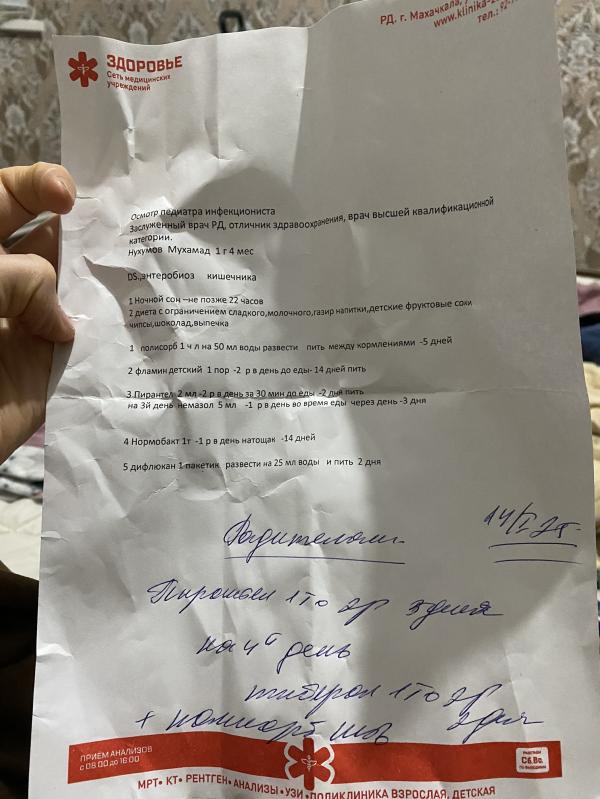 РД. г. Махачкала,
www.klinika-z
тел.: 92-
ЗДОРОВЬЕ
Сеть медицинских
учреждений
Осмотр педиатра инфекциониста
Заслуженный врач РД, отличник здравоохранения, врач высшей квалификационной
категории.
Нухумов Мухамад 1 г 4 мес
DS.,энтеробиоз кишечника
1 Ночной сон –не позже 22 часов
2 диета с ограничением сладкого,молочного,газир напитки,детские фруктовые соки
чипсы,шоколад,выпечка
1 полисорб 1 ч л на 50 мл воды развести пить между кормлениями -5 дней
2 фламин детский 1 пор -2 р в день до еды- 14 дней пить
3 Пирантел 2 мл -2 р в день за 30 мин до еды -2 дня пить
на 3й день немазол 5 мл -1 р в день во время еды через день -3 дня
4 Нормобакт 1г -1 р в день натощак -14 дней
5 дифлюкан 1 пакетик развести на 25 мл воды и пить 2 дня
14/I
Родителям
1то 2р 3 дня
на 4й день
1то 2р
+ 2 дня
ПРИЕМ АНАЛИЗОВ
с 08:00 до 16:00
РАБОТАЕМ
Сб.Вс.
МРТ• КТ• РЕНТГЕН•АНАЛИЗЫ•УЗИ•ПОЛИКЛИНИКА ВЗРОСЛАЯ, ДЕТСКАЯ